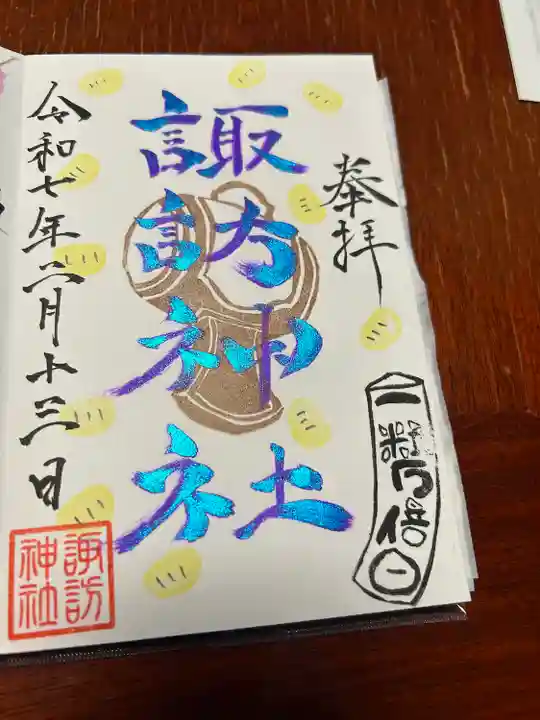 奉拝
一粒万倍日
諏訪神社
令和七年二月十三日
諏訪
神社